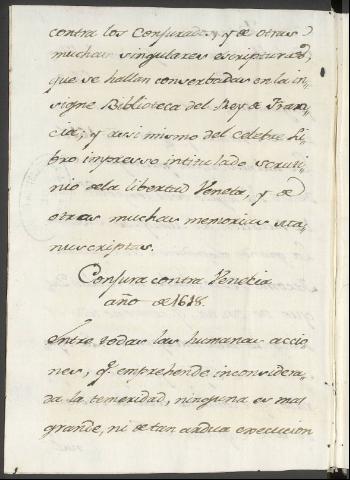 contra los Conjurados, y de otras
muchas singulares escripturas,
que se hallan conserbadas en la in-
signe Biblioteca del Rey de Fran-
cia; y assi mismo del celebre Li-
bro impresso intitulado scruti-
nio dela libertad Veneta, y de
otras muchas memorias ma-
nuscriptas.
Conjura contra Venetia
año de 1618.
Entre todas las humanas accio-
nes, q. emprehende inconsidera-
da la temeridad, ninguna es mas
grande, ni de tan ardua execucion